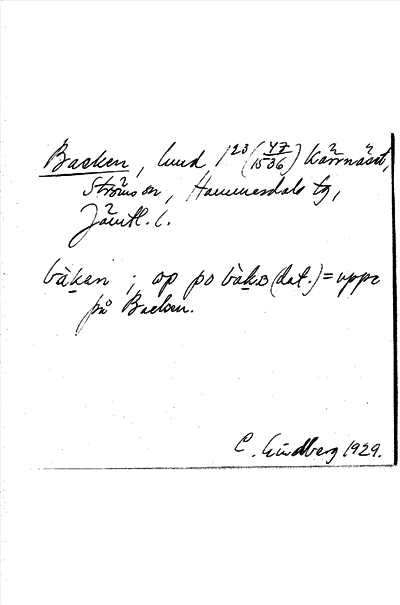 Backen, hmd 1²³ (47/1536) Kärrnäset,
Ströms sn, Hammerdals tg,
Jämtl. l.
bàkan ; op po bàka (dat.) = uppe
på Backen.
C. Lindberg 1929.